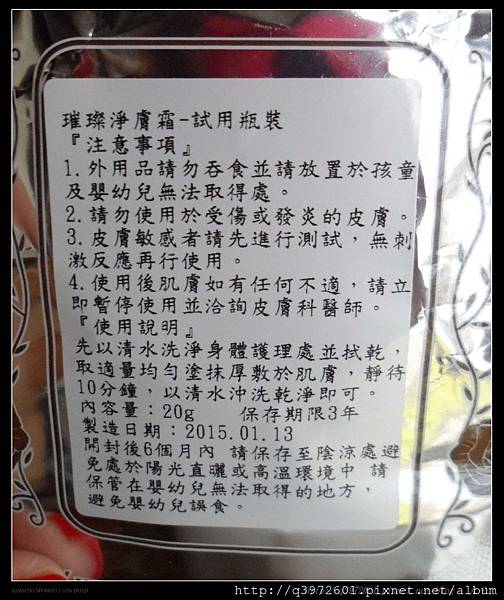 璀璨淨膚霜-試用瓶裝
『注意事項』
1.外用品請勿吞食並請放置於孩童
及嬰幼兒無法取得處。
2.請勿使用於受傷或發炎的皮膚。
3.皮膚敏感者請先進行測試，無刺
激反應再行使用。
4.使用後肌膚如有任何不適，請立
即暫停使用並洽詢皮膚科醫師。
『使用說明』
先以清水洗淨身體護理處並拭乾，
取適量均勻塗抹厚敷於肌膚，靜待
10分鐘，以清水沖洗乾淨即可。
內容量：20g 保存期限3年
製造日期：2015.01.13
開封後6個月內 請保存至陰涼處避
免處於陽光直曬或高溫環境中 請
保管在嬰幼兒無法取得的地方，
避免嬰幼兒誤食。
http://q3972601.pixnet.net/album